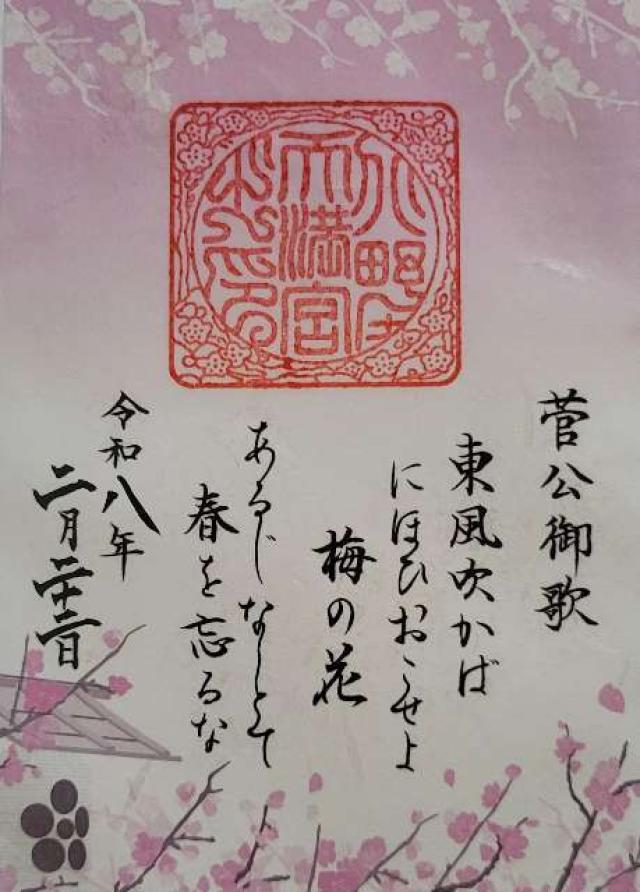 天満宮
菅公御歌
東風吹かば
にほひおこせよ
梅の花
あるじなしとて
春を忘るな
令和八年
二月二十二日